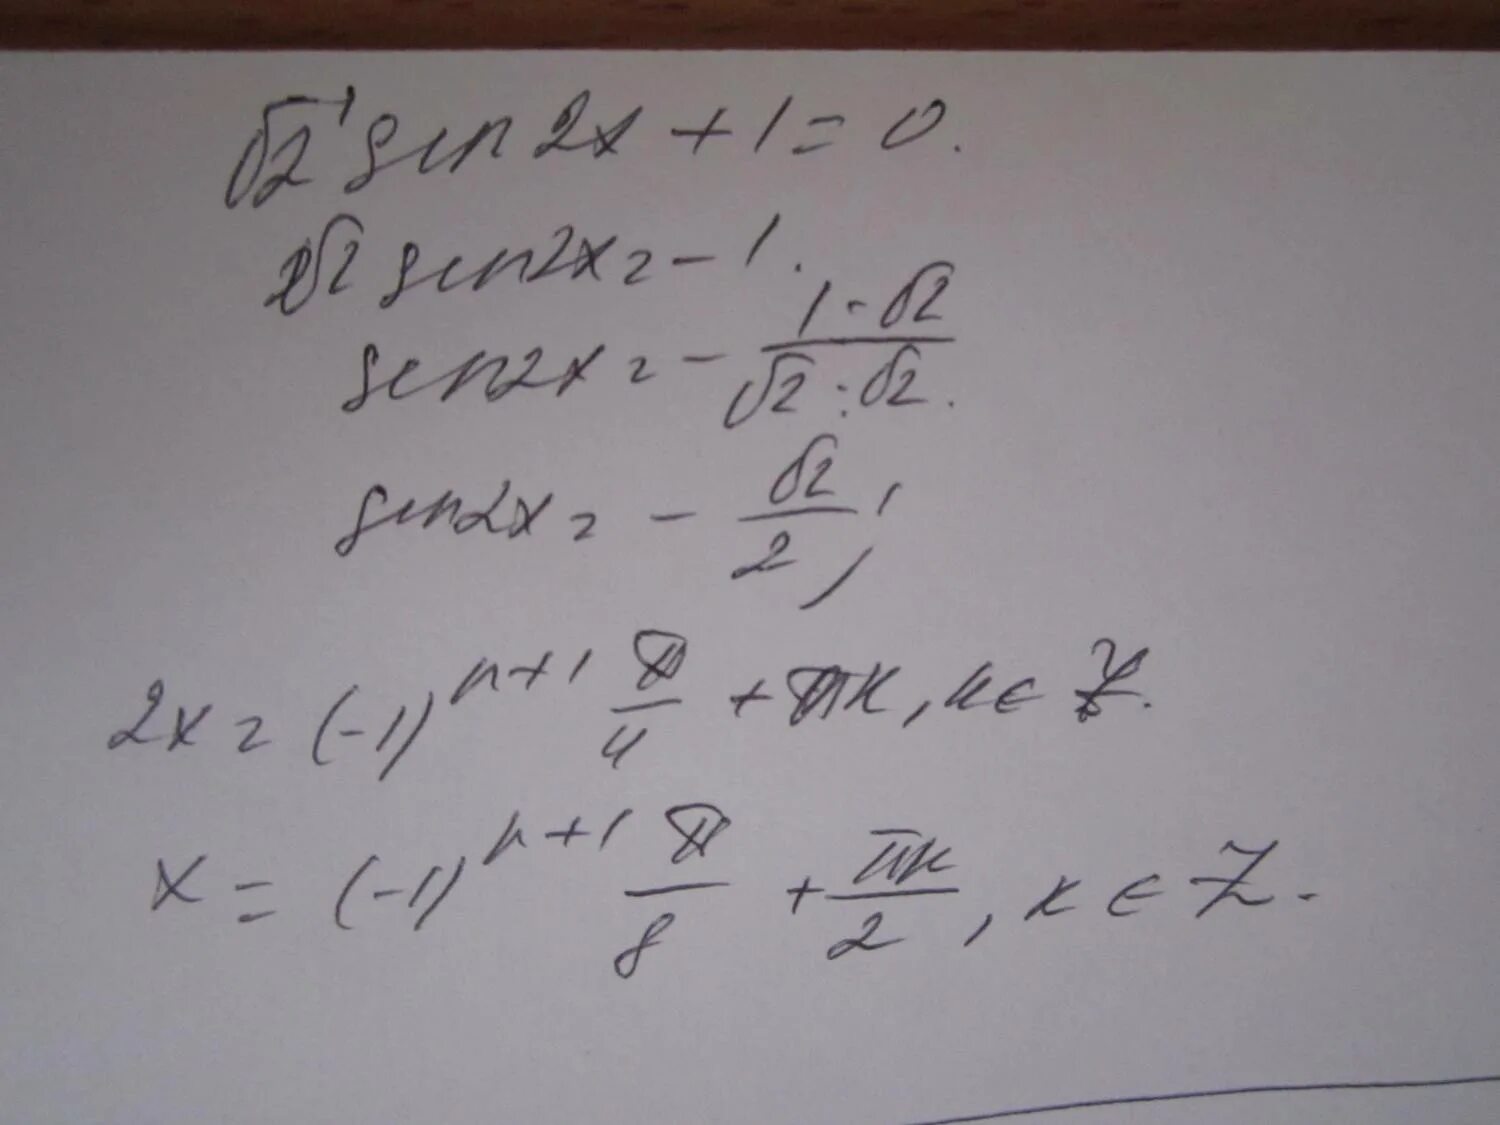 √2 sin 2x + 1 = 0.
√2 sin 2x = - 1.
sin 2x = - (1 · √2)/(√2 · √2).
sin 2x = - √2/2;
2x = (-1)^(n+1) π/4 + πк, к ∈ Z.
x = (-1)^(n+1) π/8 + πк/2, к ∈ Z.